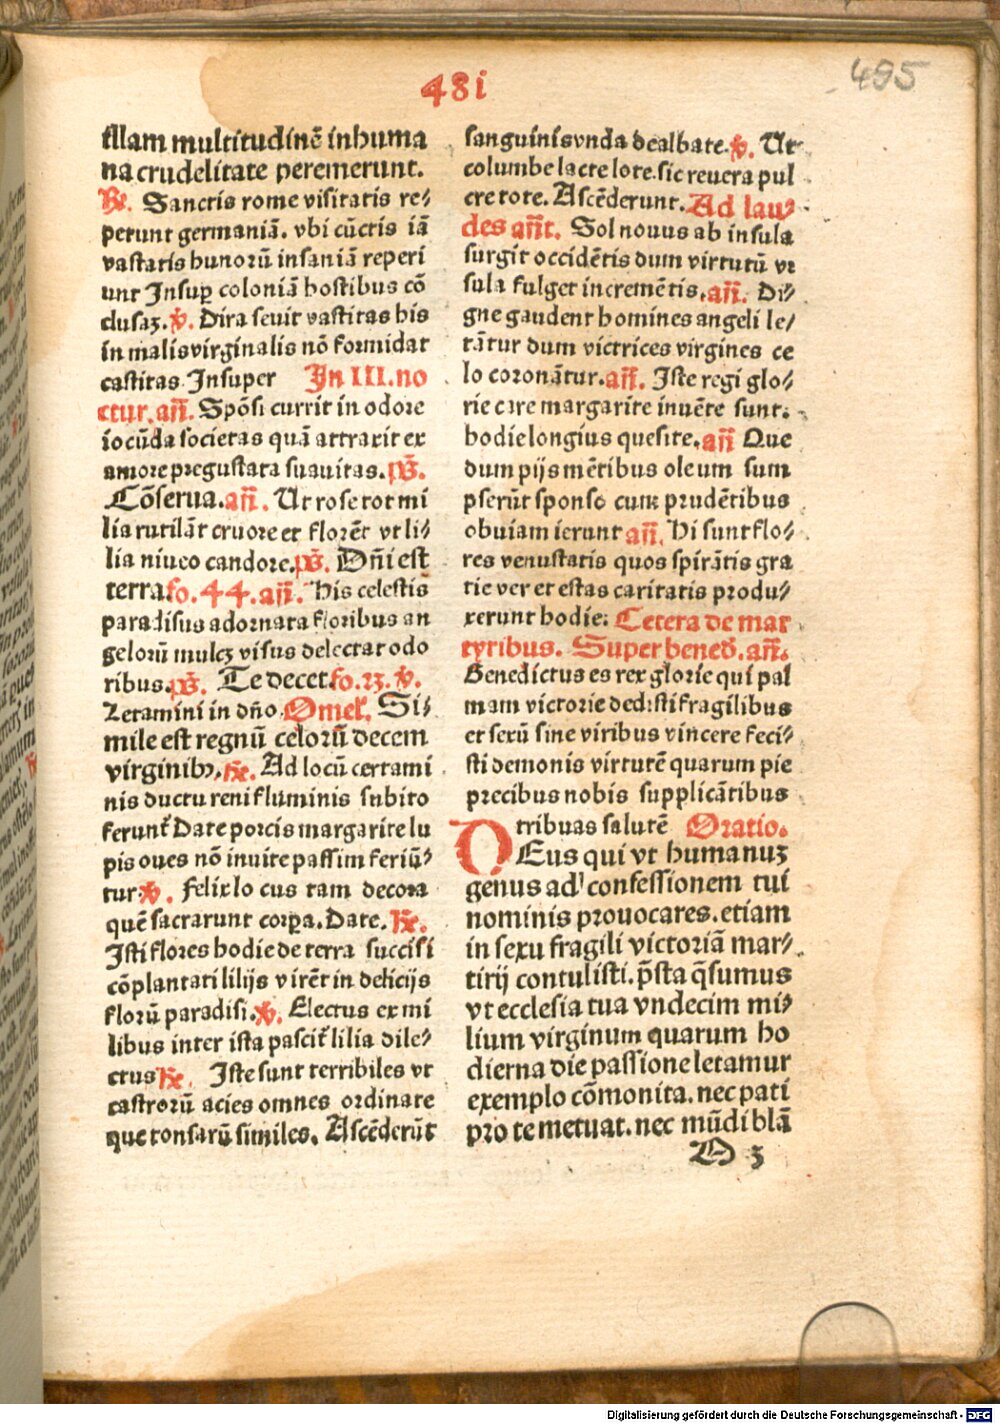 481
495
illam multitudinē inhuma
na crudelitate peremerunt.
℟. Sanctis rome visitatis re⸗
petunt germaniā. vbi cūctis iā
vastatis hunorū insaniā reperi
unt Insuꝑ coloniā hostibus cō
clusaʒ. ℣. Dira seuit vastitas his
in malis virginalis nō formidat
castitas. Insuper In III. no
ctur. añ. Spōsi currit in odore
iocūda societas quā attraxit ex
amore pregustata suauitas. p̄s.
Cōserua. añ. Ut rose tot mi
lia rutilāt cruore et florēt vt li⸗
lia niueo candore. p̄s. Dñi est
terra fo. 44. añ. His celestis
paradisus adornata floribus an
gelorū mulcʒ visus delectat odo
ribus. p̄s. Te decet fo. 23. ℣.
Letamini in dño. Omel. Si⸗
mile est regnū celorū decem
virginibꝫ. ℟. Ad locū certami
nis ductu reni fluminis subito
ferunt̄ Date porcis margarite lu
pis oues nō inuite passim feriū⸗
tur ℣. Felix lo cus tam decora
quē sacrarunt corpa. Date. ℟.
Isti flores hodie de terra succisi
cōplantati lilijs virēt in delicijs
florū paradisi. ℣. Electus ex mi
libus inter ista pascit̄ lilia dile⸗
ctus ℟. Iste sunt terribiles vt
castrorū acies omnes ordinate
que tonsarū similes. Ascēderūt
sanguinis vnda dealbate. ℣. Ut
columbe lacte lote. sic reuera pul
cre tote. Ascēderunt. Ad lau⸗
des añt. Sol nouus ab insula
surgit occidētis dum virtutū vr
sula fulget incremētis. añ. Di⸗
gne gaudent homines angeli le⸗
tātur dum victrices virgines ce
lo coronātur. añ. Iste regi glo⸗
rie care margarite inuēte sunt.
hodie longius quesite. añ Que
dum pijs mētibus oleum sum
pserūt sponso cum prudētibus
obuiam ierunt añ. Hi sunt flo⸗
res venustatis quos spirātis gra
tie ver et estas caritatis produ⸗
xerunt hodie: Cetera de mar
tyribus. Super bened. añ.
Benedictus es rex glorie qui pal
mam victorie dedisti fragilibus
et sexū sine viribus vincere feci⸗
sti demonis virtutē quarum pie
precibus nobis supplicātibus
tribuas salutē Oratio.
DEus qui vt humanuʒ
genus ad confessionem tui
nominis prouocares. etiam
in sexu fragili victoriā mar⸗
tirij contulisti. p̄sta q̄sumus
vt ecclesia tua vndecim mi⸗
lium virginum quarum ho
dierna die passione letamur
exemplo cōmonita. nec pati
pro te metuat. nec mūdi blā
O 3
Digitalisierung gefördert durch die Deutsche Forschungsgemeinschaft - DFG